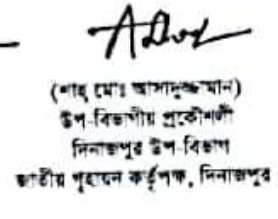 (শাহ্ মোঃ আসাদুজ্জামান)
উপ-বিভাগীয় প্রকৌশলী
দিনাজপুর উপ-বিভাগ
জাতীয় গৃহায়ন কর্তৃপক্ষ, দিনাজপুর